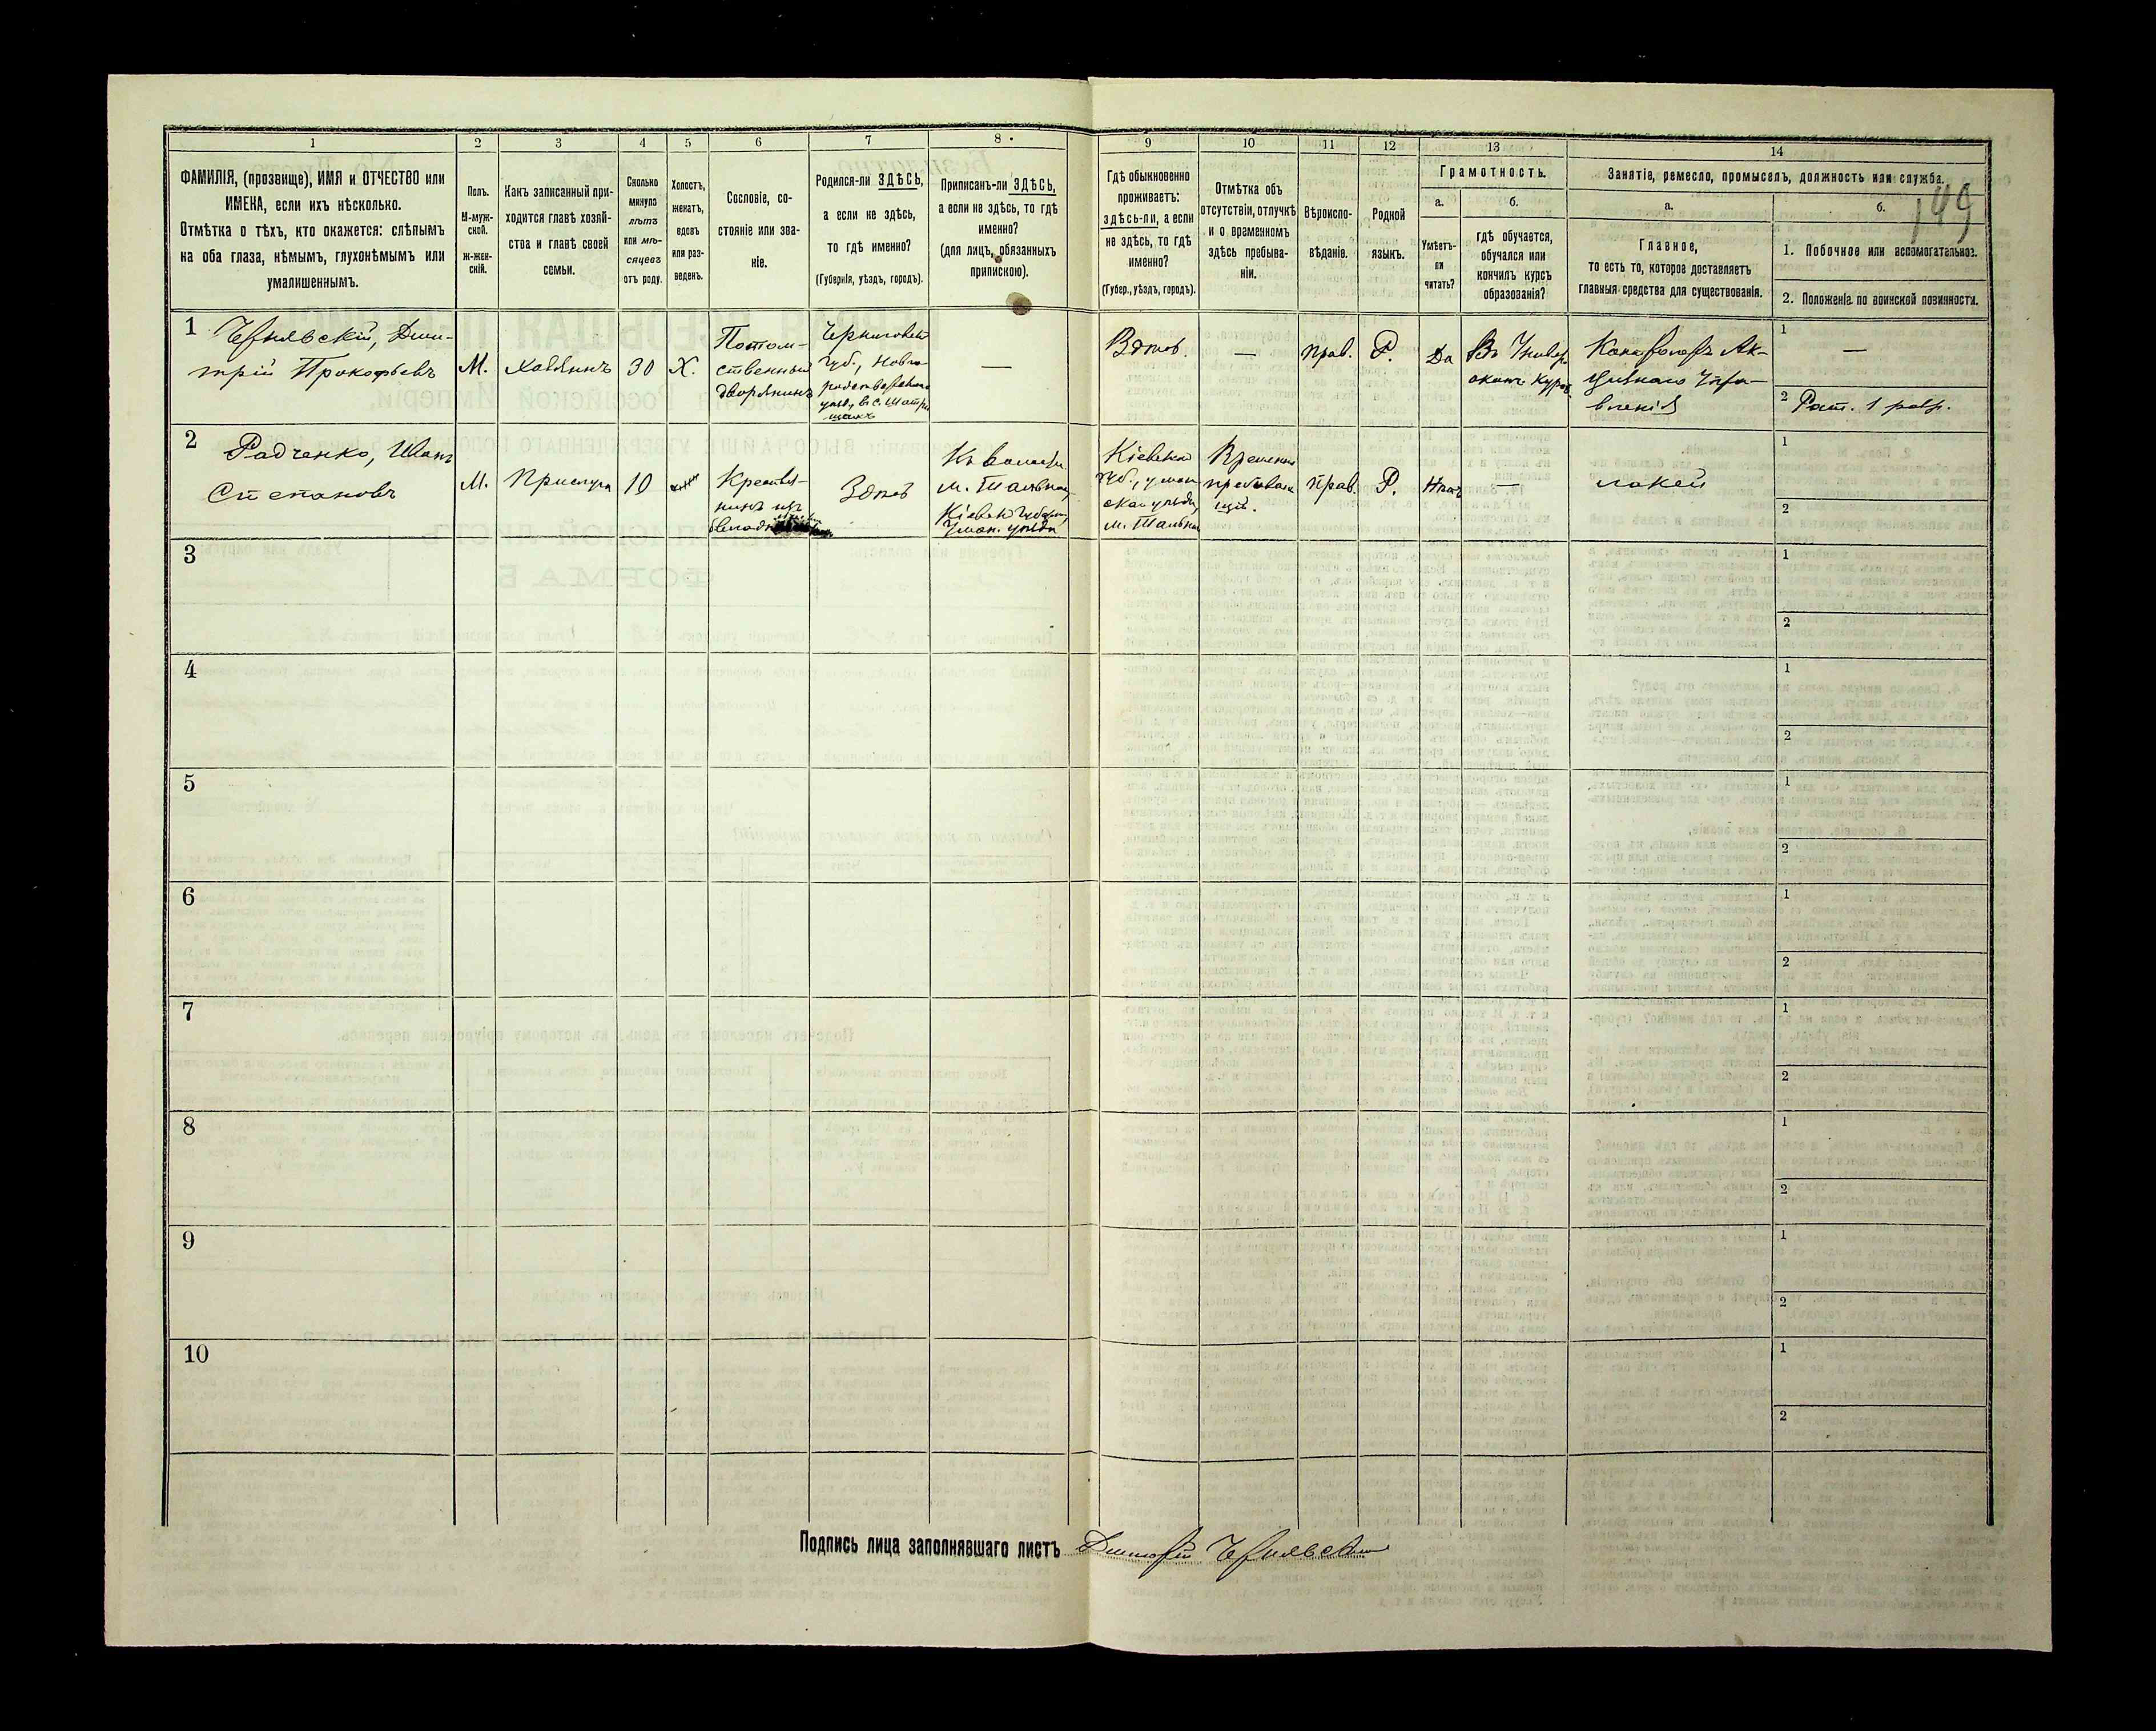 1
2
3
4
5
6
7
8
9
10
11
12
13
14
ФАМИЛІЯ, (прозвище), ИМЯ и ОТЧЕСТВО или
ИМЕНА, если ихъ нѣсколько.
Отмѣтка о тѣхъ, кто окажется: слѣпымъ
на оба глаза, нѣмымъ, глухонѣмымъ или
умалишеннымъ.
Полъ.
М-муж-
ской.
ж-жен-
скій.
Какъ записанный при-
ходится главѣ хозяй-
ства и главѣ своей
семьи.
Сколько
минуло
лѣтъ
или мѣ-
сяцевъ
отъ роду.
Холостъ,
женатъ,
вдовъ
или раз-
веденъ.
Сословіе, со-
стояніе или зва-
ніе.
Родился-ли ЗДѢСЬ,
а если не здѣсь,
то гдѣ именно?
(Губернія, уѣздъ, городъ).
Приписанъ-ли ЗДѢСЬ,
а если не здѣсь, то гдѣ
именно?
(для лицъ, обязанныхъ
припискою).
Гдѣ обыкновенно
проживаетъ:
здѣсь-ли, а если
не здѣсь, то гдѣ
именно?
(Губер., уѣздъ, городъ).
Отмѣтка объ
отсутствіи, отлучкѣ
и о временномъ
здѣсь пребыва-
ніи.
Вѣроиспо-
вѣданіе.
Родной
языкъ.
Грамотность.
а.
Умѣетъ-
ли
читать?
б.
гдѣ обучается,
обучался или
кончилъ курсъ
образованія?
Занятіе, ремесло, промыселъ, должность или служба.
149
а.
Главное,
то есть то, которое доставляетъ
главныя средства для существованія.
б.
1. Побочное или вспомогательное.
2. Положеніе по воинской повинности.
1
Чернявскій, Дми-
трій Прокофьевъ
М.
Хозяинъ
30
Х.
Потом-
ственный
дворянинъ
Черниговской
Губ., Новго-
—
Здѣсь.
—
Прав.
Р.
Да
Въ Универ.
оконч. курсъ
Ак-
цизнаго Упра-
вленія
1
—
2
Рат. 1 разр.
2
Радченко, Иванъ
Степановъ
М.
Прислуга
10
Крестья-
нинъ изъ
Здѣсь
м. Тальное
Кіевск. Губерн.
Уман. уѣзда
Кіевской
Губ., Уман-
скаго уѣзда,
м. Тальное
Временно
пребываю-
щій.
Прав.
Р.
—
лакей
1
2
3
1
2
4
1
2
5
1
2
6
1
2
7
1
2
8
1
2
9
1
2
10
1
2
Подпись лица заполнявшаго листъ Дмитрій Чернявскій